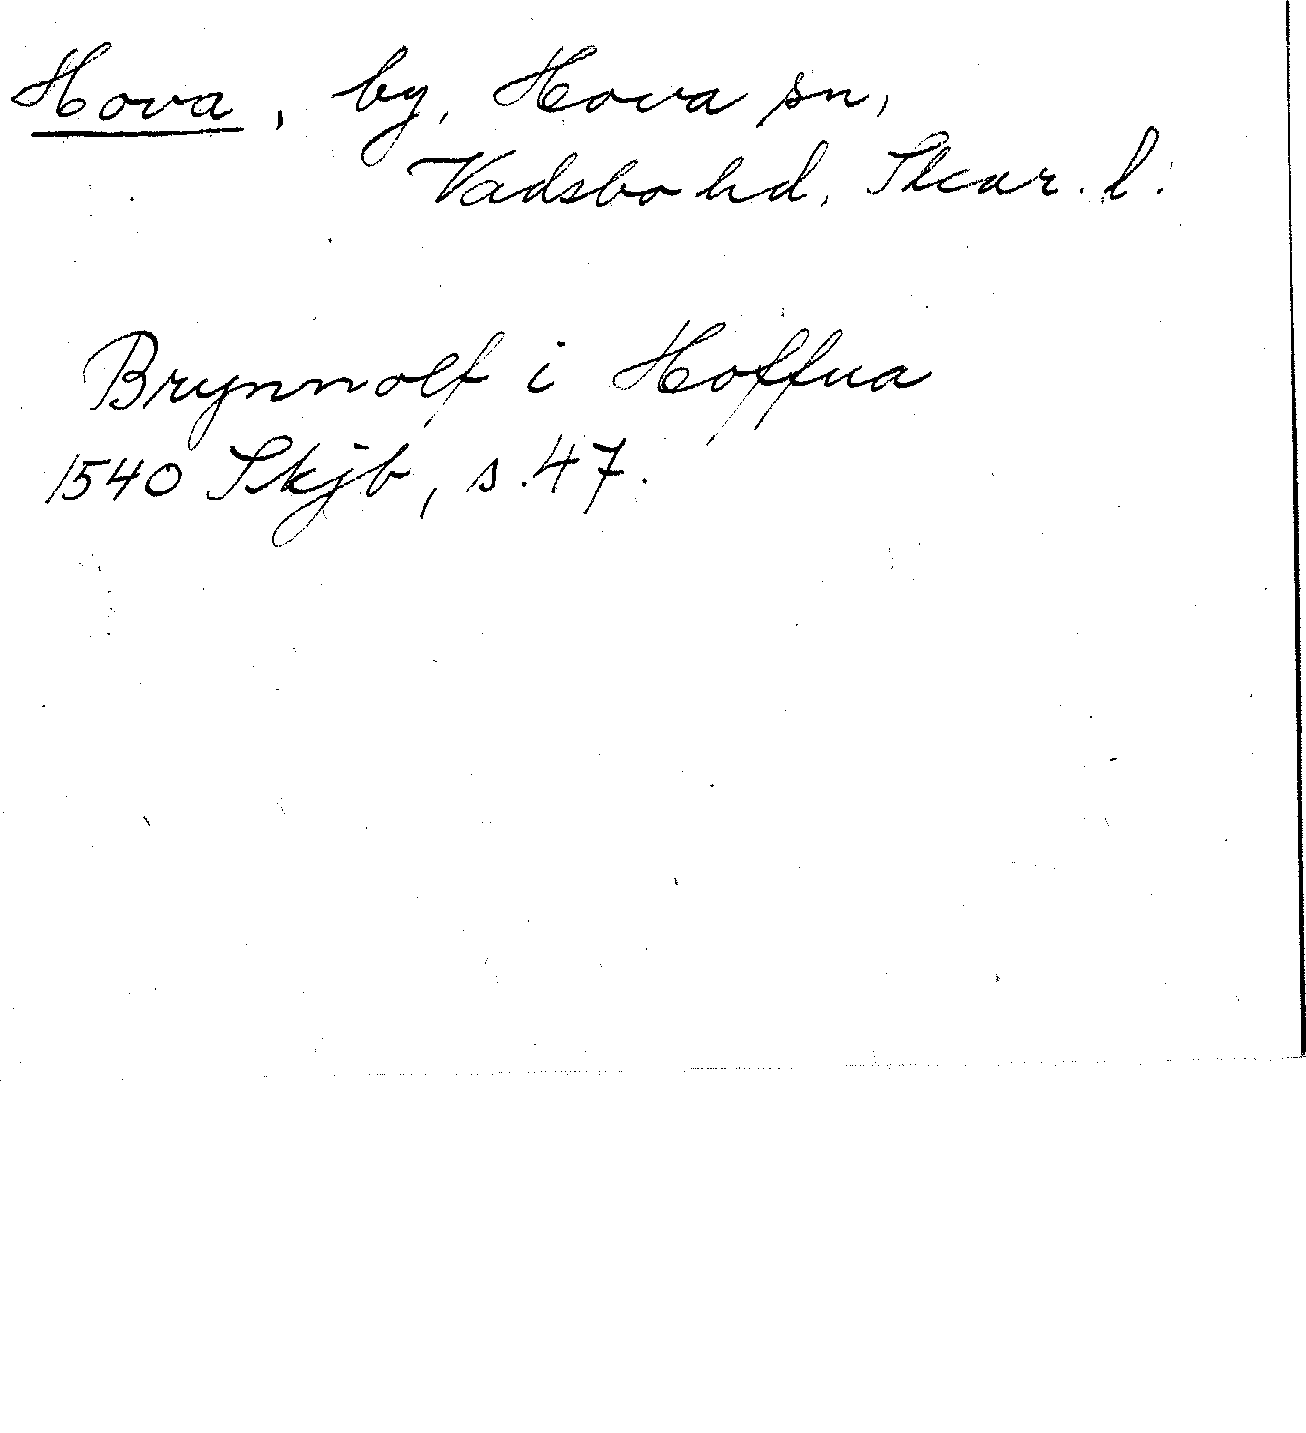 Hova, by, Hova sn,
Vadsbo hd, Skar. l.
Brynnolf i Hoffua
1540 Skjb, s. 47.